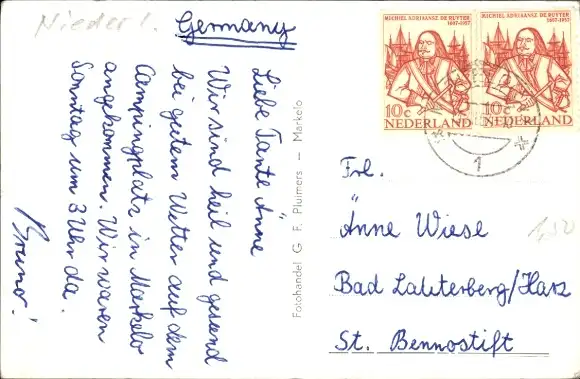 Niederl.
Germany
Liebe Tante Änne
Wir sind heil und gesund
bei gutem Wetter auf dem
Campingplatz in Markelo
angekommen. Wir waren
Sonntag um 3 Uhr da.
Bruno!
Fotohandel G. F. Pluimers — Markelo
MICHIEL ADRIAANSZ DE RUYTER
1607-1957
10c
NEDERLAND
MICHIEL ADRIAANSZ DE RUYTER
1607-1957
10c
NEDERLAND
1
Frl.
Änne Wiese
Bad Lauterberg/Harz
St. Bennostift
1,50